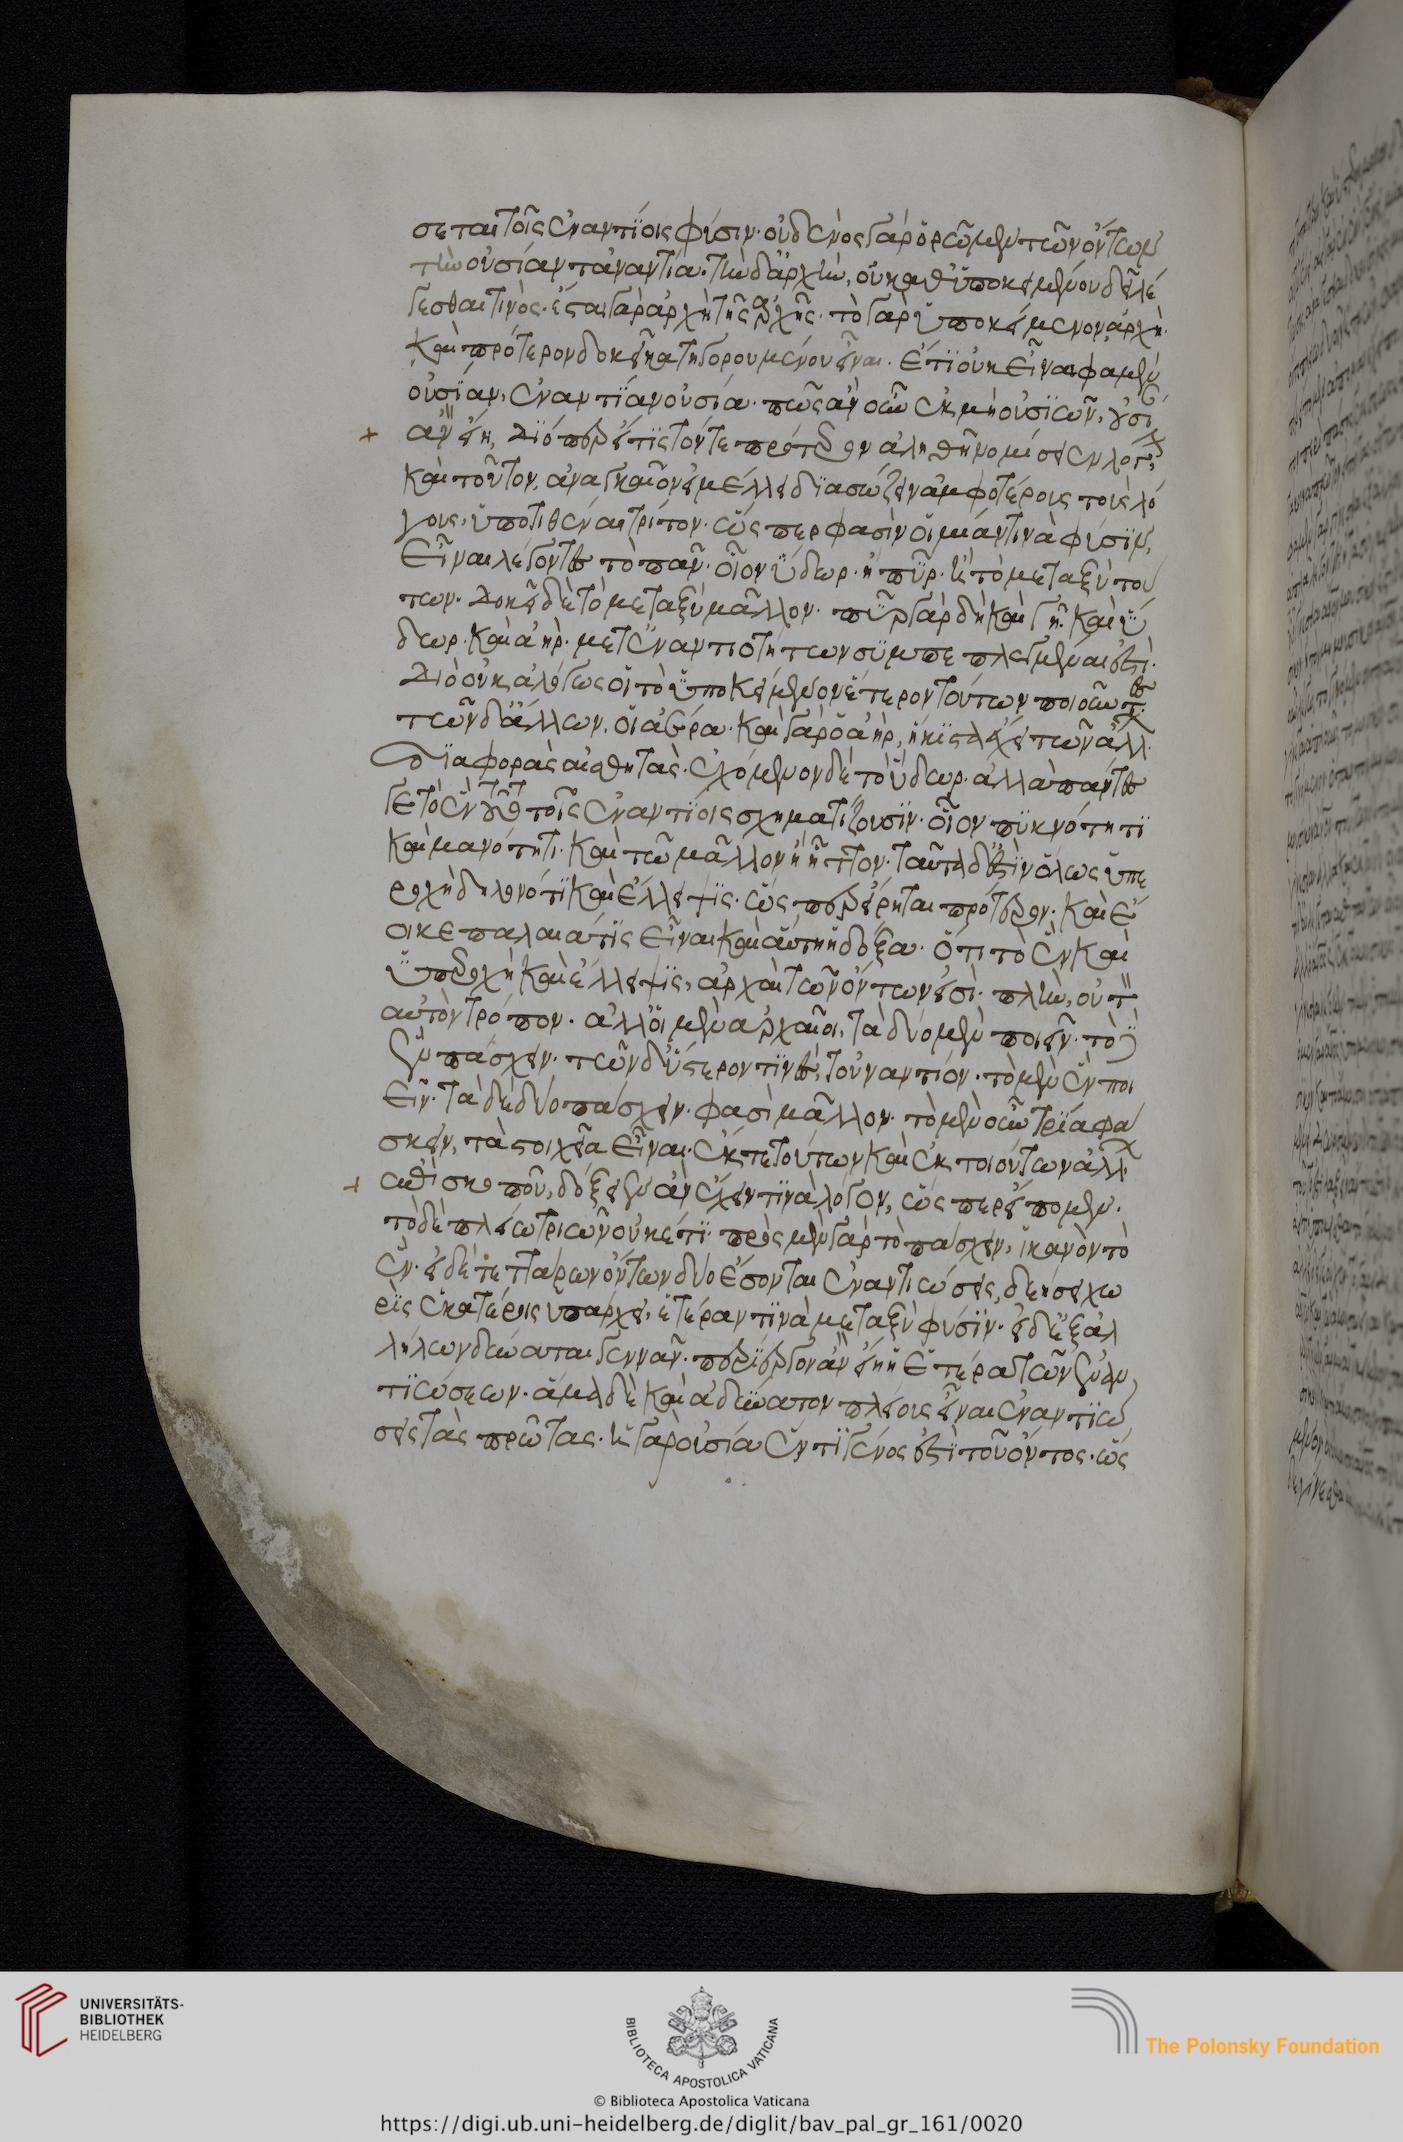 σεται τοῖς ἐναντίοις φύσιν· οὐδενὸς γὰρ ὁρῶμεν τῶν ὄντων
τὴν οὐσίαν τἀναντία· τὴν δ' ἀρχὴν, οὐ καθ' ὑποκειμένου δεῖ λέ
γεσθαι τινὸς· ἔσται γὰρ ἀρχὴ τῆς ἀρχῆς· τὸ γὰρ ὑποκείμενον ἀρχὴ·
καὶ πρότερον δοκεῖ κατηγορουμένου εἶναι· ἔτι οὐκ εἶναι φαμὲν
οὐσίαν, ἐναντίαν οὐσία· πῶς ἂν οὖν ἐκ μὴ οὐσιῶν, οὐσί
ἂν εἴη, Διόπερ εἴ τις τόν τε πρότερον ἀληθῆ νομίσειεν λόγον,
καὶ τοῦτον, ἀναγκαῖον εἰ μέλλει διασώζειν ἀμφοτέρους τοὺς λό
γους, ὑποτιθέναι τρίτον· ὥσπερ φασὶν οἱ μίαν τινὰ φύσιν,
εἶναι λέγοντες τὸ πᾶν· οἷον ὕδωρ· ἢ πῦρ· ἢ τὸ μεταξὺ τού
των· Δοκεῖ δὲ τὸ μεταξὺ μᾶλλον· πῦρ γὰρ δὴ καὶ γῆ· καὶ ὕ
δωρ· καὶ ἀὴρ· μετ' ἐναντιοτήτων συμπεπλεγμένα ἐστὶ·
Διὸ οὐκ ἀλόγως οἱ τὸ ὑποκείμενον ἕτερον τούτων ποιοῦντες·
τῶν δ' ἄλλων, οἱ ἀέρα· καὶ γὰρ ὁ ἀὴρ, ἥκιστα ἔχει τῶν ἄλλ
διαφορὰς αἰσθητὰς· ἐχόμενον δὲ τὸ ὕδωρ· ἀλλὰ πάντες
γε τὸ ἓν τοῦτο τοῖς ἐναντίοις σχηματίζουσιν· οἷον πυκνότητι
καὶ μανότητι· καὶ τῶ μᾶλλον ἢ ἧττον· ταῦτα δ' ἐστὶν ὅλως ὑπε
ροχὴ δηλονότι καὶ ἔλλειψις· ὥσπερ εἴρηται πρότερον· καὶ ἔ
οικε παλαιά τις εἶναι καὶ αὕτη ἡ δόξα· ὅτι τὸ ἓν καὶ
ὑπεροχὴ καὶ ἔλλειψις, ἀρχαὶ τῶν ὄντων εἰσὶ· πλὴν, οὐ τ
αὐτὸν τρόπον· ἀλλ' οἱ μὲν ἀρχαῖοι, τὰ δύο μὲν ποιεῖν· τὸ δ'
ἓν πάσχειν· τῶν δ' ὕστερον τινὲς, τοὐναντίον· τὸ μὲν ἓν ποι
εῖν· τὰ δὲ δύο πάσχειν· φασὶ μᾶλλον· τὸ μὲν οὖν τρία φά
σκειν, τὰ στοιχεῖα εἶναι· ἔκ τε τούτων καὶ ἐκ τοιούτων ἄλλων
ἐπισκοποῦσι, δόξειεν ἂν ἔχειν τινὰ λόγον, ὥσπερ εἴπομεν·
τὸ δὲ πλείω τριῶν οὐκέτι· πρὸς μὲν γὰρ τὸ πάσχειν, ἱκανὸν τὸ
ἓν· εἰ δὲ τεττάρων ὄντων δύο ἔσονται ἐναντιώσεις, δεήσει χω
ρὶς ἑκατέραις ὑπάρχειν, ἑτέραν τινὰ μεταξὺ φύσιν· εἰ δ' ἐξ ἀλ
λήλων δύνανται γεννᾶν· περίεργον ἂν εἴη ἡ ἑτέρα τῶν ἐναν
τιώσεων· ἅμα δὲ καὶ ἀδύνατον πλείους εἶναι ἐναντιώ
σεις τὰς πρώτας· ἡ γὰρ οὐσία ἕν τι γένος ἐστὶ τοῦ ὄντος· ὥς
UNIVERSITÄTS-
BIBLIOTHEK
HEIDELBERG
BIBLIOTECA APOSTOLICA VATICANA
© Biblioteca Apostolica Vaticana
The Polonsky Foundation
https://digi.ub.uni-heidelberg.de/diglit/bav_pal_gr_161/0020